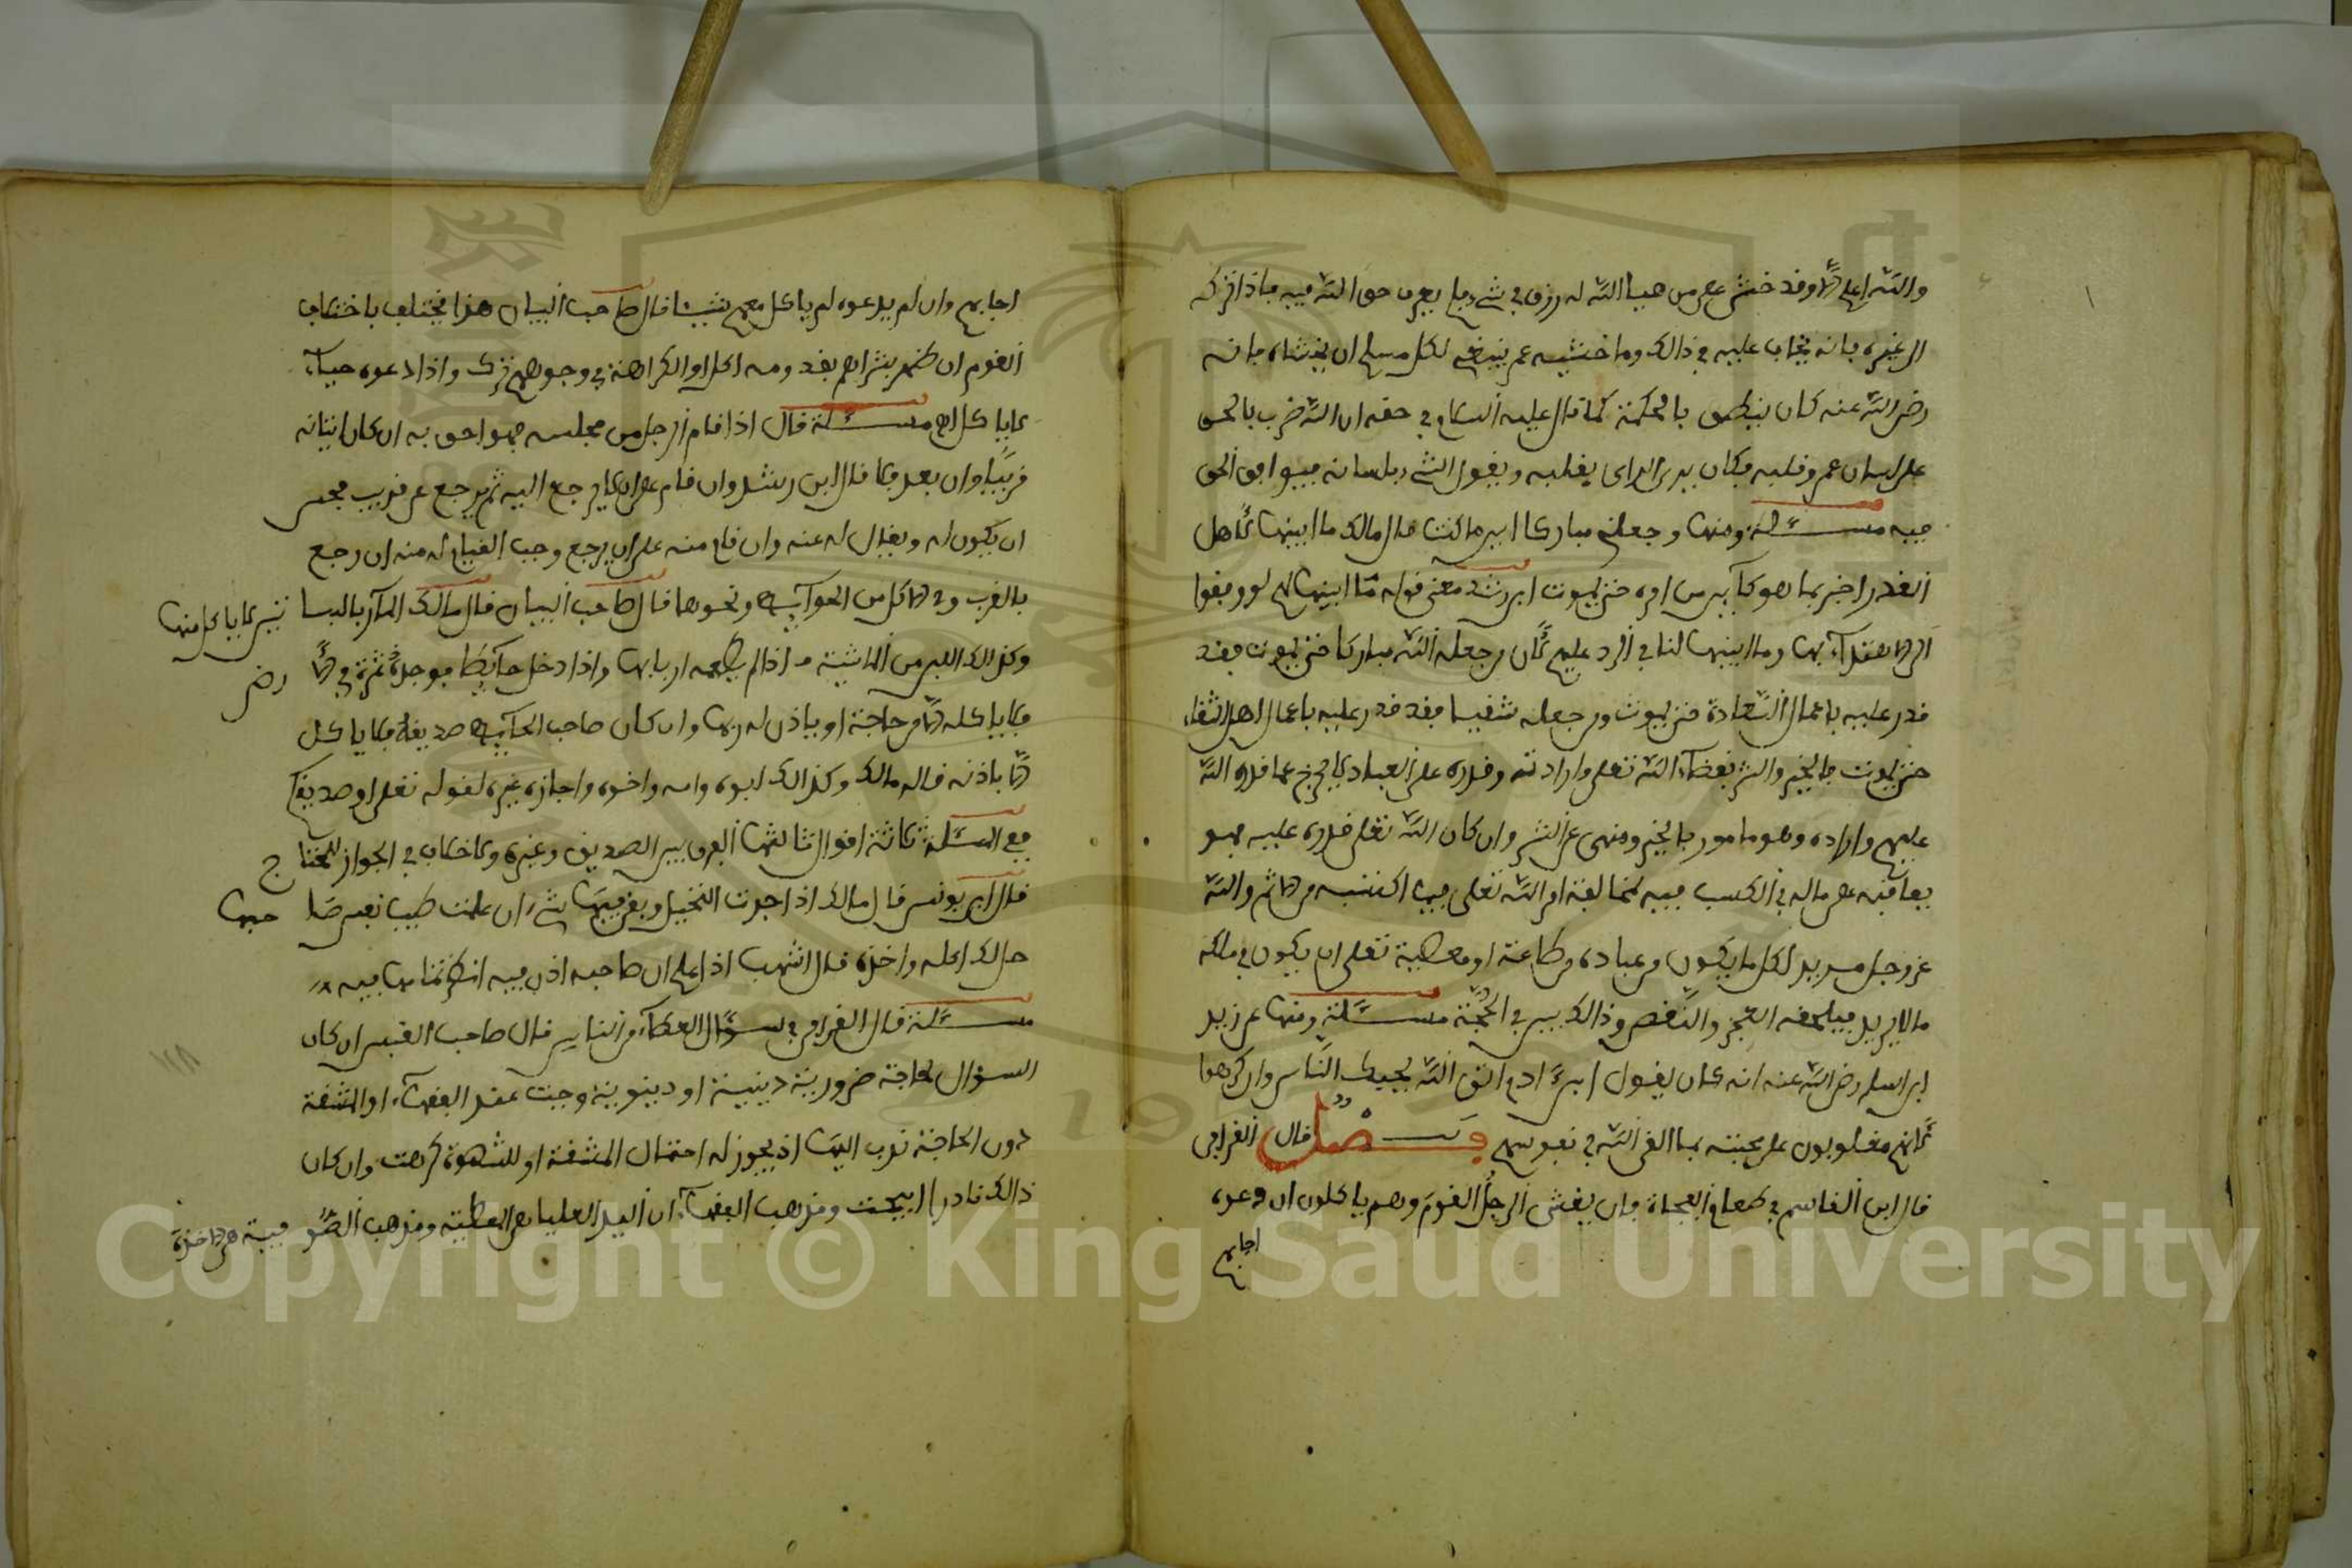 والله اعلم وقد خشي عمر من هبا الله له رزق في شيء بلم يعرف حق الله فيه فإذا تركه
الى غيره فانه يخاف عليه في ذالك وما خشيه عمر ينبغي لكل مسلم ان يخشاه فانه
رضي الله عنه كان ينطق بالحكمة كما قال عليه السلام في حقه ان الله ضرب بالحق
على لسان عمر وقلبه فكان يرى الراى بقلبه ويقول الشيء بلسانه فيوافق الحق
فيه مسئلة ومنها وجعلني مباركا اين ما كنت قال مالك ما ابينها لاهل
القدر اخبر بما هو كآين من امره حتى يموت ابن رشد معنى قوله ما ابينها لهم لو وفقوا
الى الاهتدآء بها وما ابينها لنا في الرد عليهم لان من جعله الله مباركا حتى يموت فقد
قدر عليه باعمال السعادة حتى يموت ومن جعله شقيا فقد قدر عليه باعمال اهل الشقاء
حتى يموت فالخير والشر بقضآء الله تعلى وارادته وقدره على العباد لا يخرج عما قدره الله
عليهم واراده وهو مامور بالخير ومنهى عن الشر وان كان الله تعلى قدره عليه فهو
يعاقبه على ماله في الكسب فيه لمخالفة امر الله تعلى فيما اكتسبه من الاثم والله
عز وجل مريد لكل ما يكون من عباده من طاعة او معصية تعلى ان يكون في ملكه
ما لا يريد فيلحقه العجز والنقص وذالك بين في الحجة مسئلة ومنها عن زيد
ابن اسلم رضي الله عنه انه كان يقول ابن آدم اتق الله يحبك الناس وان كرهوا
لانهم مغلوبون على محبته بما القى الله في نفوسهم فصل قال القرافي
قال ابن القاسم في طعام الفجاة فان يغشى الرجل القوم وهم ياكلون ان دعوه
اجابهم
اجابهم وان لم يدعوه لم ياكل معهم شيئا قال صاحب البيان هذا يختلف باختلاف
القوم ان ظهر بشراهم بقدومه اكل او الكراهة في وجوههم ترك واذا دعوه حياء
لا ياكل اهـ مسئلة قال اذا قام الرجل من مجلسه فهو احق به ان كان اتيانه
قريبا وان بعد فلا قال ابن رشد وان قام على ان لا يرجع اليه ثم يرجع عن قريب فحسن
ان يكون له ويقال له عنه وان قام منه على ان يرجع وجب القيام له منه ان رجع
بالقرب وفي الاكل من الحوآيط ونحوها قال صاحب البيان قال مالك المآر بالبسا تين لا ياكل منها
وكذالك اللبن من الماشية اذا لم يطعمه اربابها واذا دخل حآيطا فوجد ثمرة في الارض
فلا ياكله الا من حاجة او ياذن له ربها وان كان صاحب الحآيط صديقه فلا ياكل
الا باذنه قاله مالك وكذالك ابوه وامه واخوه واجازه غيره لقوله تعلى او صديقكم
ففي المسئلة ثلاثة اقوال ثالثها الفرق بين الصديق وغيره ولا خلاف في الجواز للمحتا ج
قال ابن يونس قال مالك اذا جردت النخيل وبقي فيها شيء ان علمت طيب نفس صا حبها
حل لك اكله واخذه قال اشهب اذا علم ان صاحبه اذن فيه انظر تمامها فيه
مسئلة قال القرافي في سؤال العطآء من الناس قال صاحب القبس ان كان
السؤال لحاجة ضرورية دينية او دينوية وجبت عند الفقهآء او المشقة
دون الحاجة ندب اليها اذ يجوز له احتمال المشقة او للشهوة كرهت وان كان
ذالك نادرا ابيحت ومذهب الفقهآء ان اليد العليا هي المعطية ومذهب الصو فية هي الاخذة